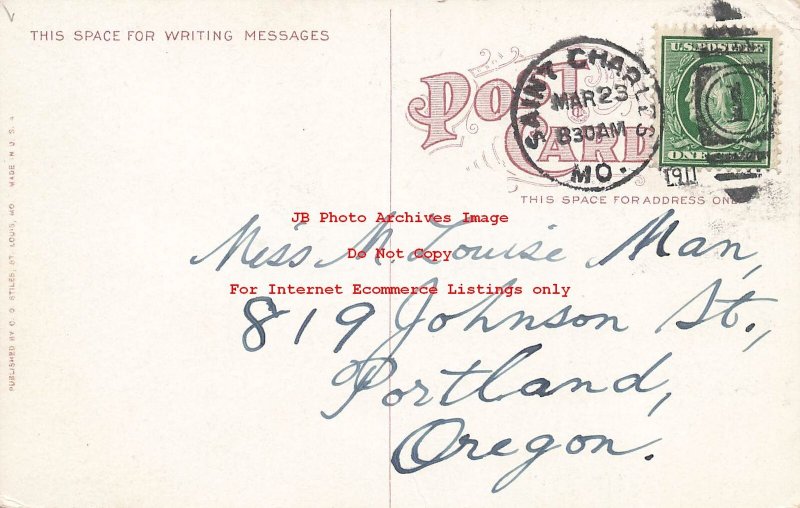 THIS SPACE FOR WRITING MESSAGES
POST CARD
SAINT CHARLES
MAR 23
830AM
MO.
1911
U.S. POSTAGE
ONE
THIS SPACE FOR ADDRESS ONLY
JB Photo Archives Image
Do Not Copy
For Internet Ecommerce Listings only
Miss M. Louise Man,
819 Johnson St.,
Portland,
Oregon.
PUBLISHED BY C. O. STILES, ST. LOUIS, MO MADE IN U.S.A